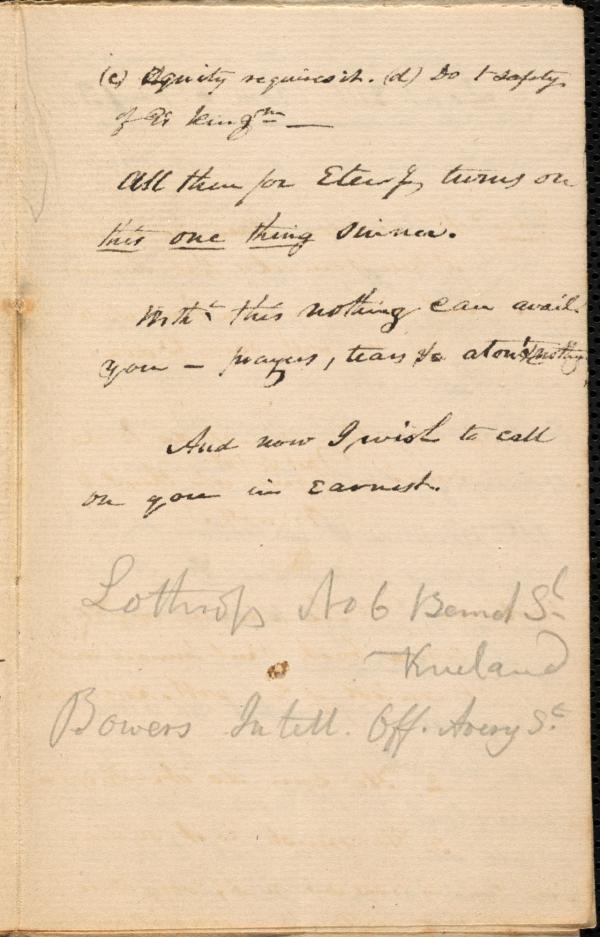 (c) Equity requires it. (d) Do t safety
of Gs kingm —
All then for Eternity, turns on
this one thing sinner.
Witht this nothing can avail
you – prayers, tears &c aton't nothg
And now I wish to call
on you in earnest.
Lothrop No 6 Bennd St
Kneland
Bowers Intell. Off. Avery St